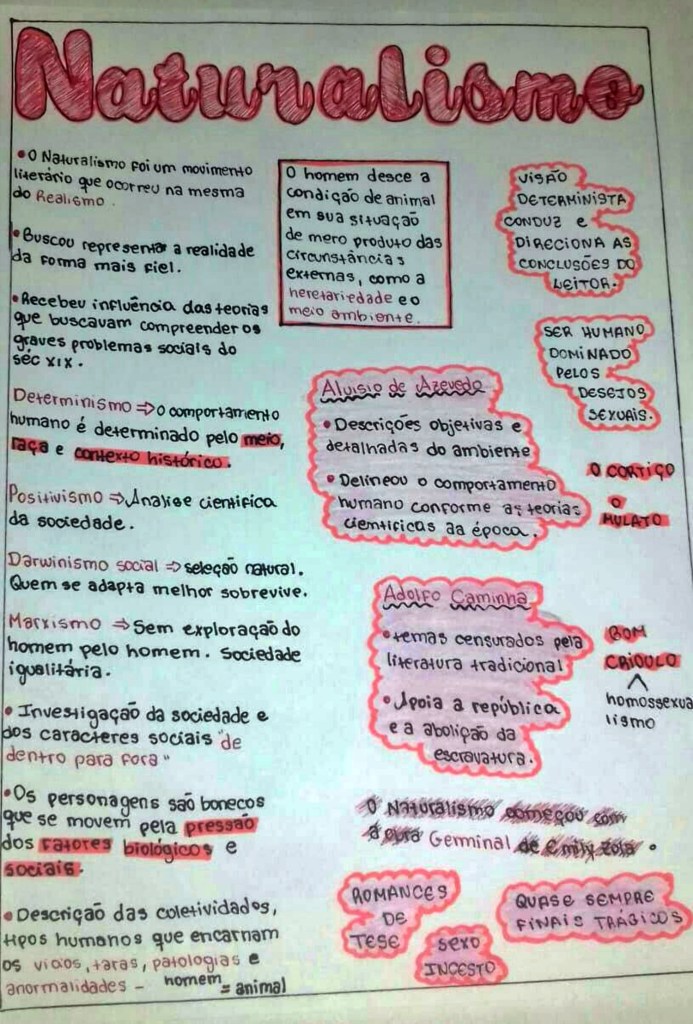 Naturalismo
• O Naturalismo foi um movimento
literário que ocorreu na mesma
do Realismo.
• Buscou representar a realidade
da forma mais fiel.
• Recebeu influência das teorias
que buscavam compreender os
graves problemas sociais do
séc XIX.
Determinismo => o comportamento
humano é determinado pelo meio,
raça e contexto histórico.
Positivismo => Analise cientifica
da sociedade.
Darwinismo social => seleção natural.
Quem se adapta melhor sobrevive.
Marxismo => Sem exploração do
homem pelo homem. Sociedade
igualitária.
• Investigação da sociedade e
dos caracteres sociais "de
dentro para fora"
• Os personagens são bonecos
que se movem pela pressão
dos fatores biológicos e
sociais.
• Descrição das coletividades,
tipos humanos que encarnam
os vicios, taras, patologias e
anormalidades - homem = animal
O homem desce a
condição de animal
em sua situação
de mero produto das
circunstâncias
externas, como a
heretariedade e o
meio ambiente.
VISÃO
DETERMINISTA
CONDUZ E
DIRECIONA AS
CONCLUSÕES DO
LEITOR.
SER HUMANO
DOMINADO
PELOS
DESEJOS
SEXUAIS.
Aluisio de Azevedo
• Descrições objetivas e
detalhadas do ambiente
• Delineou o comportamento
humano conforme as teorias
cientificas da época.
O CORTIÇO
O
MULATO
Adolfo Caminha
• temas censurados pela
literatura tradicional
• Apoia a república
e a abolição da
escravatura.
BOM
CRIOULO
homossexua
lismo
O Naturalismo começou com
a obra Germinal de Emily Zola.
ROMANCES
DE
TESE
SEXO
INCESTO
QUASE SEMPRE
FINAIS TRÁGICOS